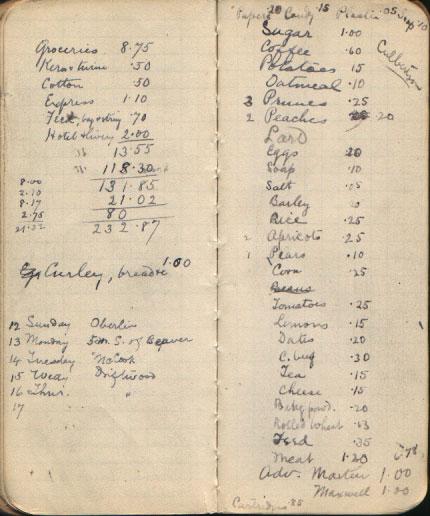 Groceries 8.75
Kero & turpine .50
Cotton .50
Express 1.10
Feed, .70
Hotel & livery 2.00
13.55
118.30
8.00 131.85
2.10
8.17 21.02
2.75 80
232.87
Curley, bread 1.00
12 Sunday Oberlin
13 Monday 5 m. S. of Beaver
14 Tuesday McCook
15 Weds Driftwood
16 Thur. "
17
Papers 20 Candy 15 Plaster .05 Soap .10
Sugar 1.00
Coffee .60
Culbertson
Potatoes 15
Oatmeal .10
3 Prunes .25
2 Peaches 20
Lard
Eggs 20
Soap .10
Salt .05
Barley
Rice .25
2 Apricots .25
1 Pears .10
Corn .25
Beans
Tomatoes .25
Lemons .15
Dates .20
.30
Tea .15
Cheese .15
Bakg powd. .20
Rolled Wheat .13
Feed .35
Meat 1.20
Adv. Martin 1.00
Maxwell 1.00
Cartridges .85